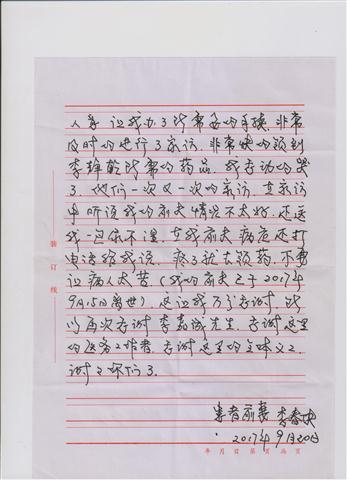 人员 让我办了所需要的手续, 非常
及时的进行了家访, 非常快的领到
李 所需的药品, 我感动的哭
了, 他们一次又一次的家访, 在家访
中听说我的前夫情况不太好, 还送
我一 在我前夫病危还打
电话给我说, 疼了就去领药, 不要
让病人太苦 (我的前夫已于2017年
9月15日离世), 这让我万分感谢, 所
以再次感谢李嘉诚先生, 感谢这里
的医务工作者, 感谢这里的全体义工,
谢谢你们了.
患者前妻 李春
2017年9月20日
装订线
年 月 日 第 页 共 页